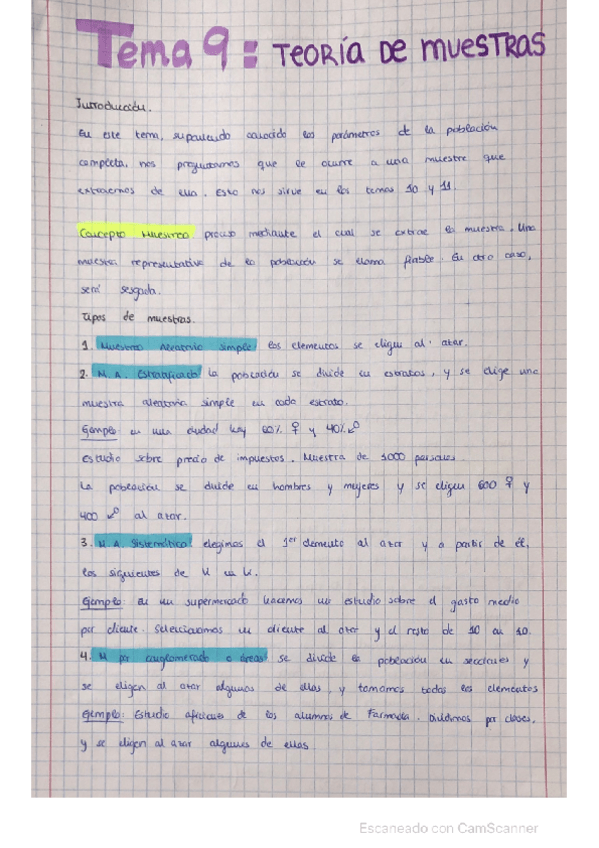 Tema 9: TEORÍA DE MUESTRAS
Introducción.
En este tema, suponiendo conocido los parámetros de la población
completa, nos preguntamos que le ocurre a una muestra que
extraemos de ella. Esto nos sirve en los temas 10 y 11.
Concepto Muestreo: proceso mediante el cual se extrae la muestra. Una
muestra representativa de la población se llama fiable. En otro caso,
será sesgada.
Tipos de muestras.
1. Muestreo Aleatorio simple: los elementos se eligen al azar.
2. M. A. Estratificado: la población se divide en estratos, y se elige una
muestra aleatoria simple en cada estrato.
Ejemplo: en una ciudad hay 60% ♀ y 40% ♂
Estudio sobre precio de impuestos. Muestra de 1000 personas.
La población se divide en hombres y mujeres y se eligen 600 ♀ y
400 ♂ al azar.
3. M. A. Sistemático: elegimos el 1er elemento al azar y a partir de él,
los siguientes de K en K.
Ejemplo: en un supermercado hacemos un estudio sobre el gasto medio
por cliente. Seleccionamos un cliente al azar y el resto de 10 en 10.
4. M por conglomerado o áreas: se divide la población en secciones y
se eligen al azar algunas de ellas, y tomamos todos los elementos
Ejemplo: Estudio aficiones de los alumnos de Farmacia. Dividimos por clases,
y se eligen al azar algunas de ellas
Escaneado con CamScanner